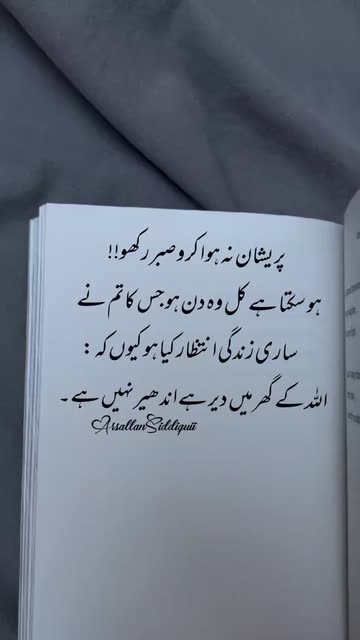 پریشان نہ ہوا کرو صبر رکھو!!
ہو سکتا ہے کل وہ دن ہو جس کا تم نے
ساری زندگی انتظار کیا ہو کیوں کہ :
اللہ کے گھر میں دیر ہے اندھیر نہیں ہے۔
ArsallanSiddiquii